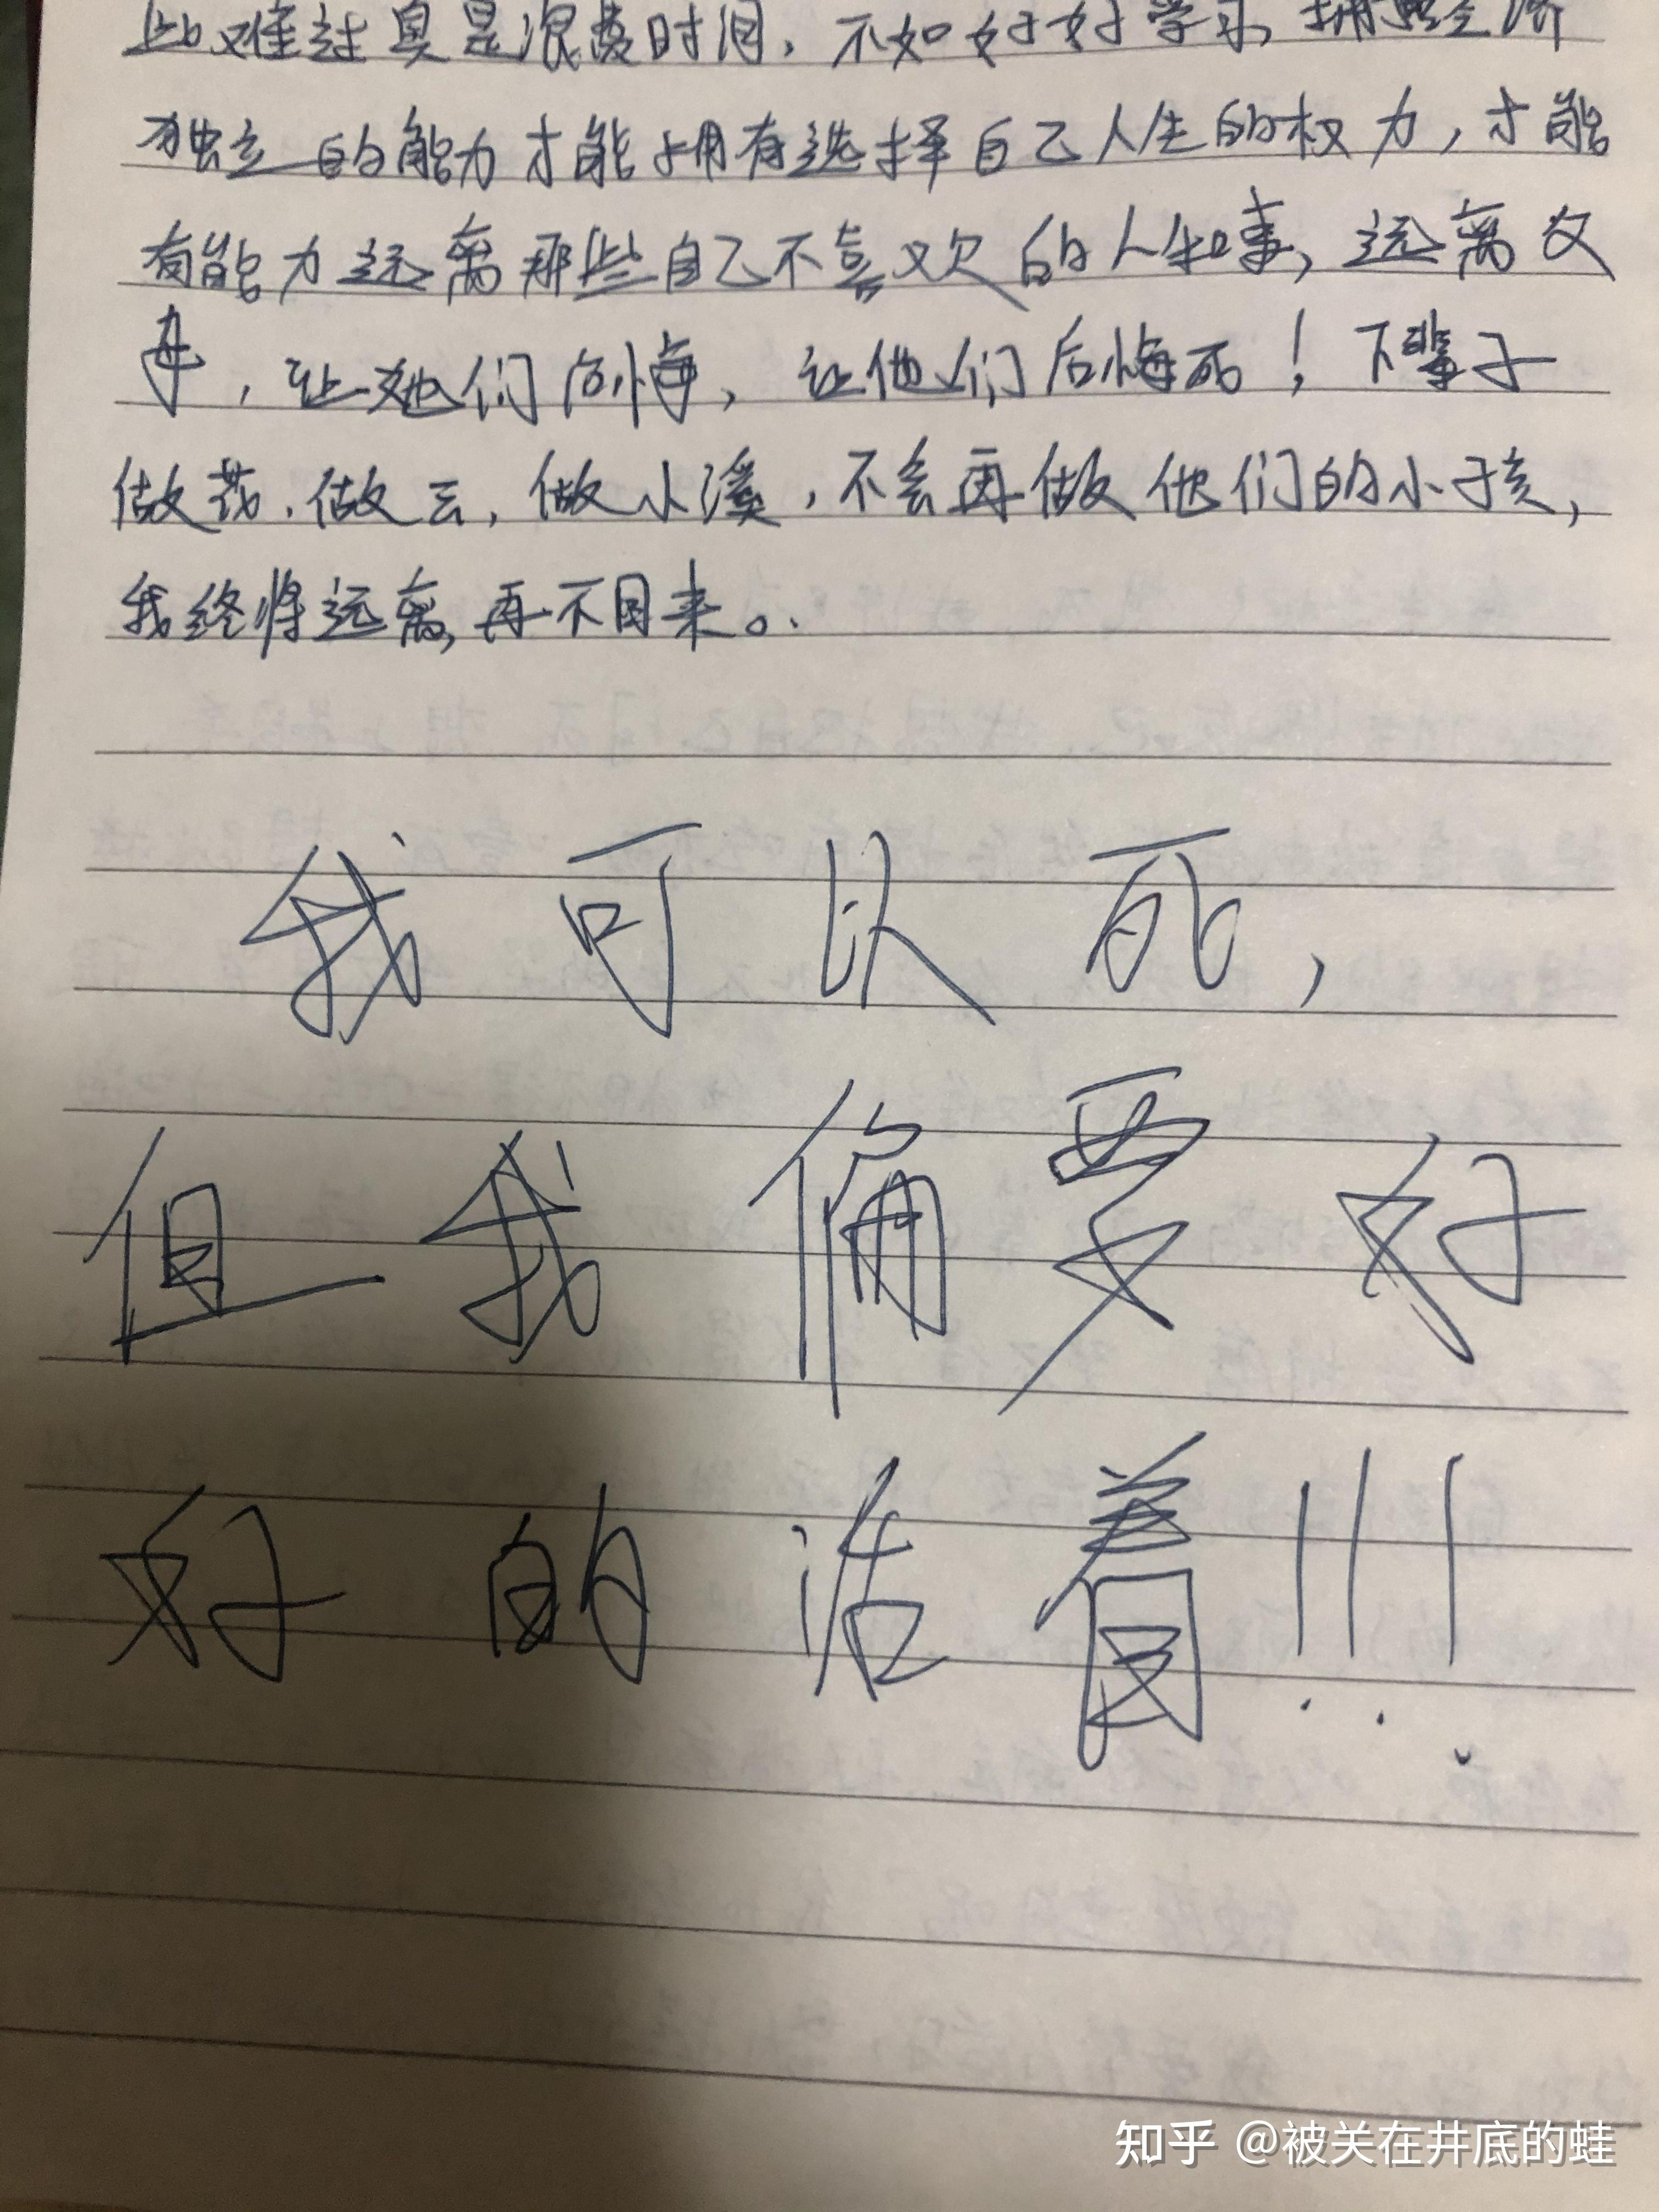 此难过真是浪费时间，不如好好学习，拥有经济
独立的能力才能拥有选择自己人生的权力，才能
有能力远离那些自己不喜欢的人和事，远离父
母，让她们后悔，让他们后悔死！下辈子
做花，做云，做小溪，不会再做他们的小孩，
我终将远离，再不回来。
我可以死，
但我偏要好
好的活着!!!
知乎 @被关在井底的蛙